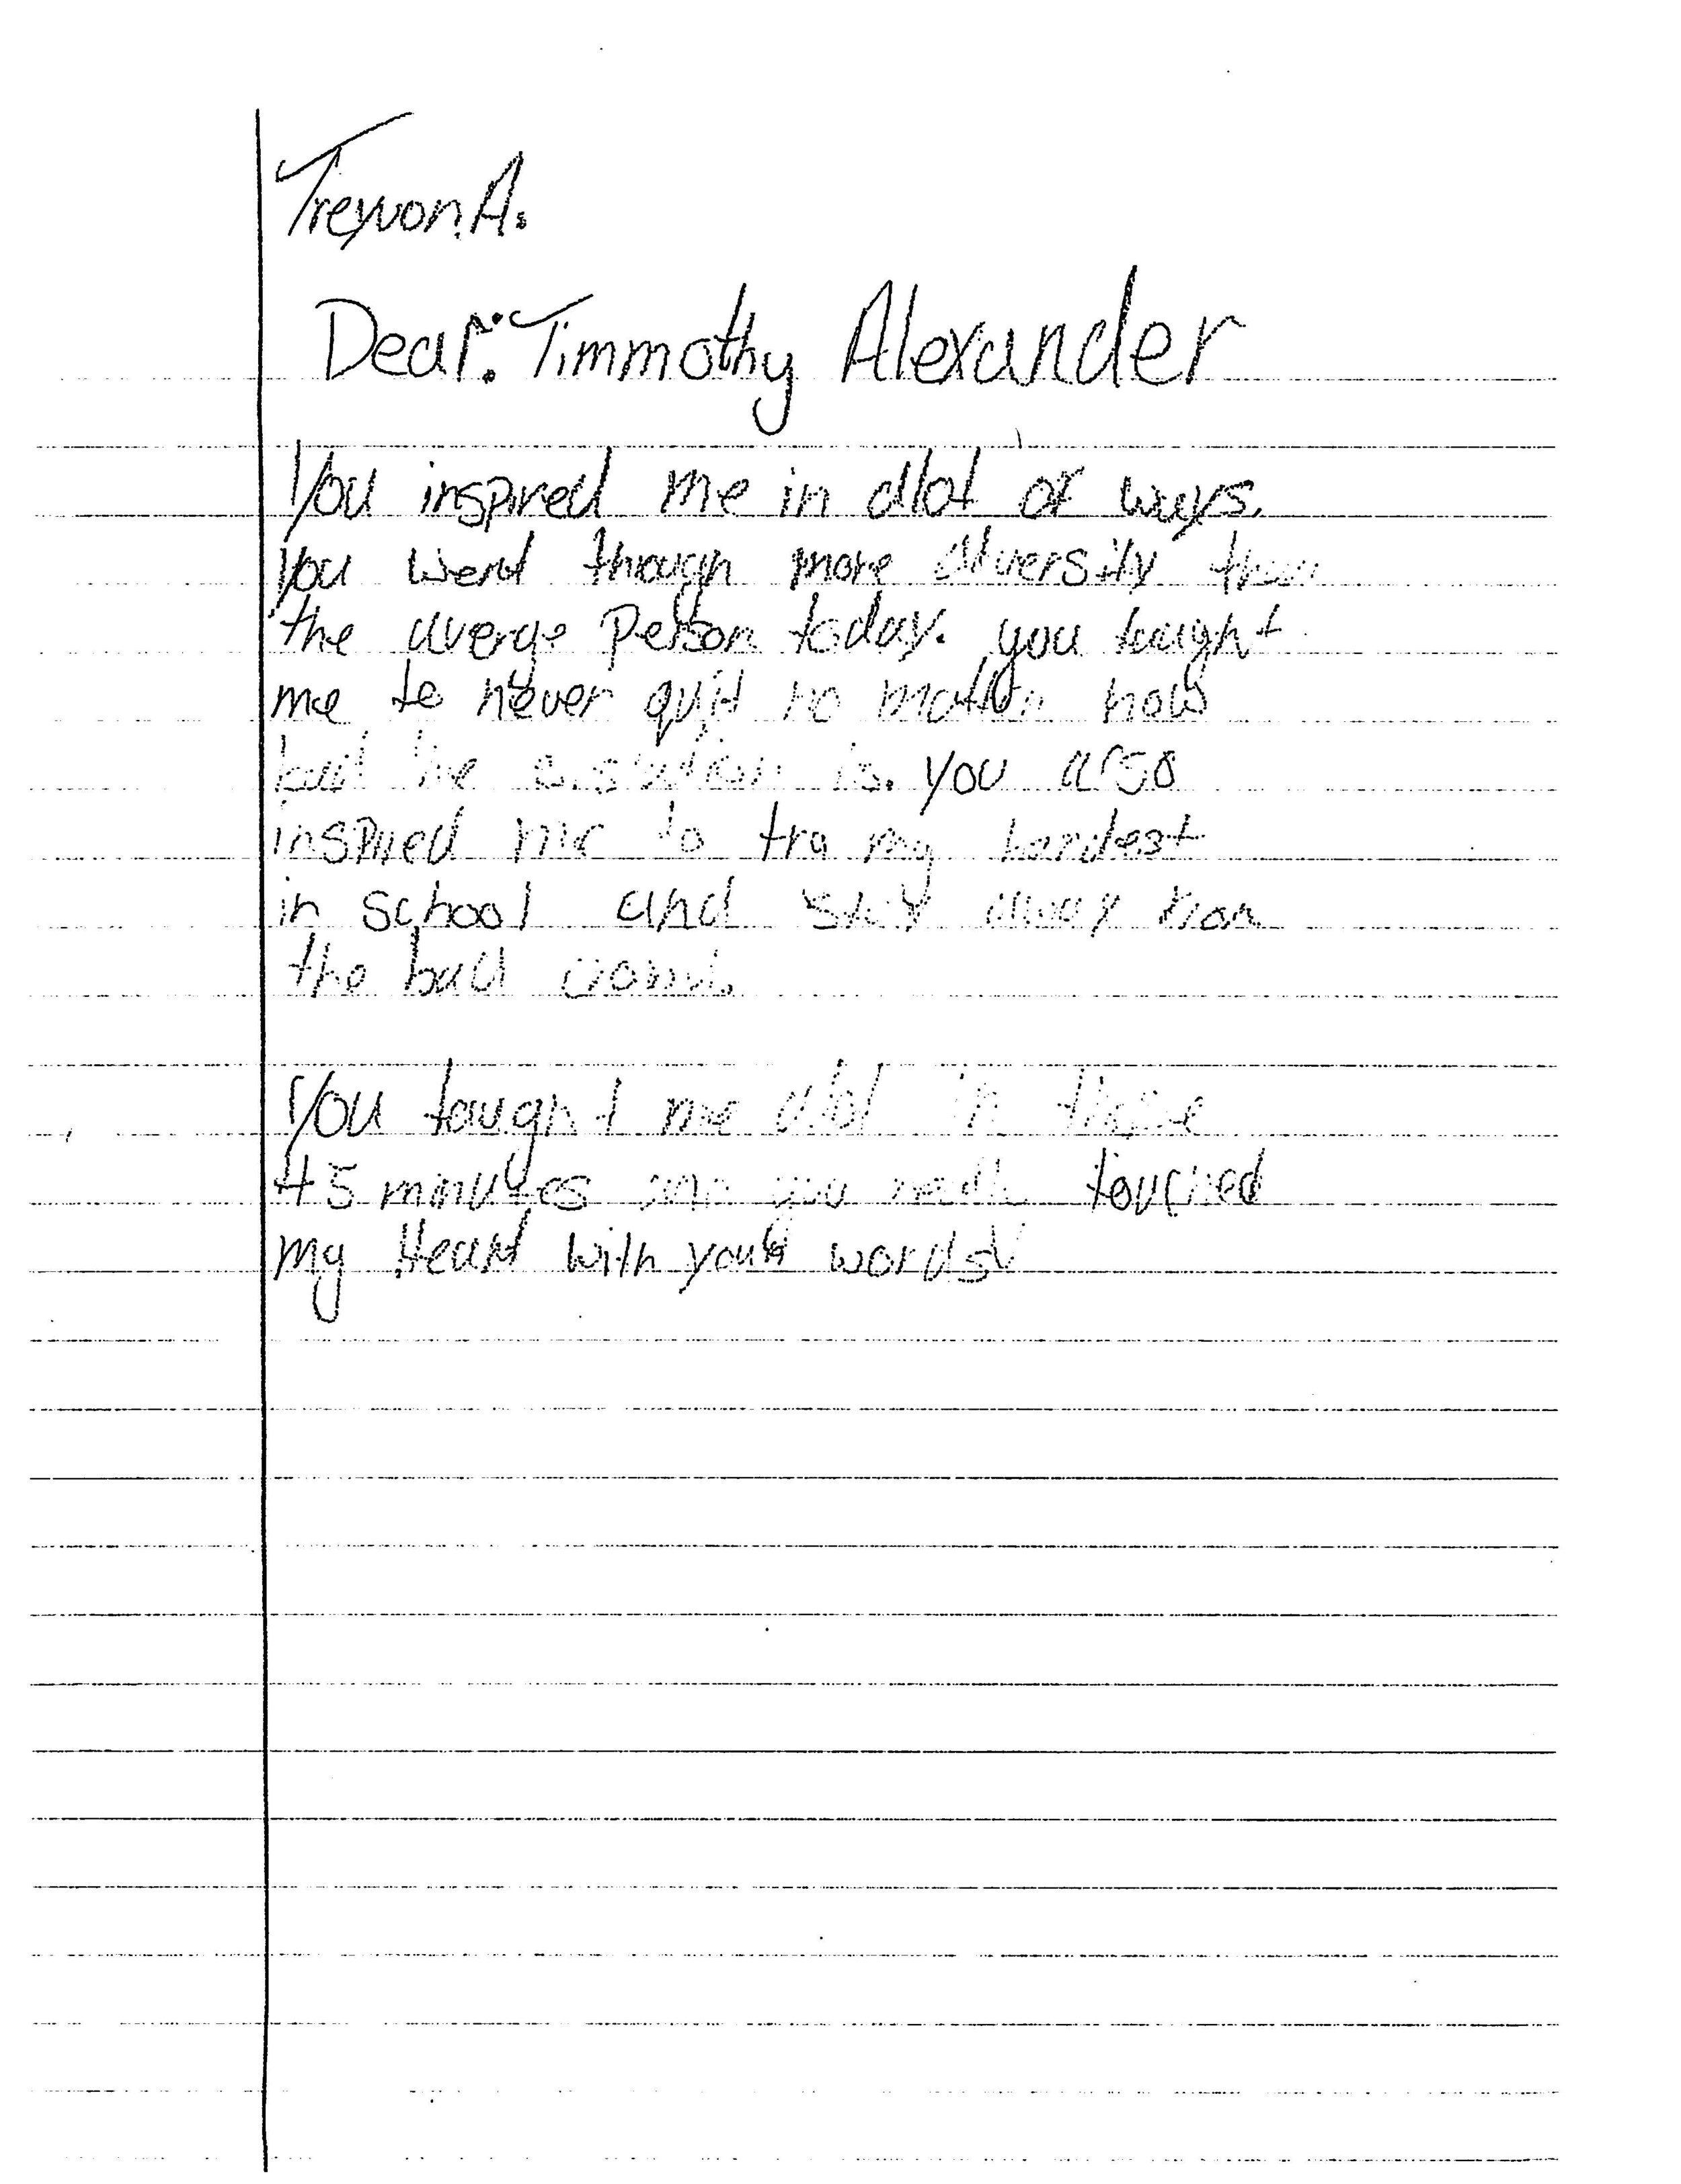 Treyvon A.
Dear: Timmothy Alexander
You inspired me in alot of ways.
you went though more diversity then
the averge Person today. you taught
me to never quit no matter how
bad the is. you also
inspired me to try my hardest
in school and stay away from
the bad crowd.
You taught me alot in those
45 minutes and you really touched
my Heart with your words!